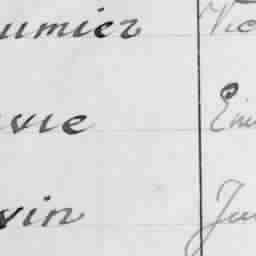 umier Vic
vie Emi
vin Ju